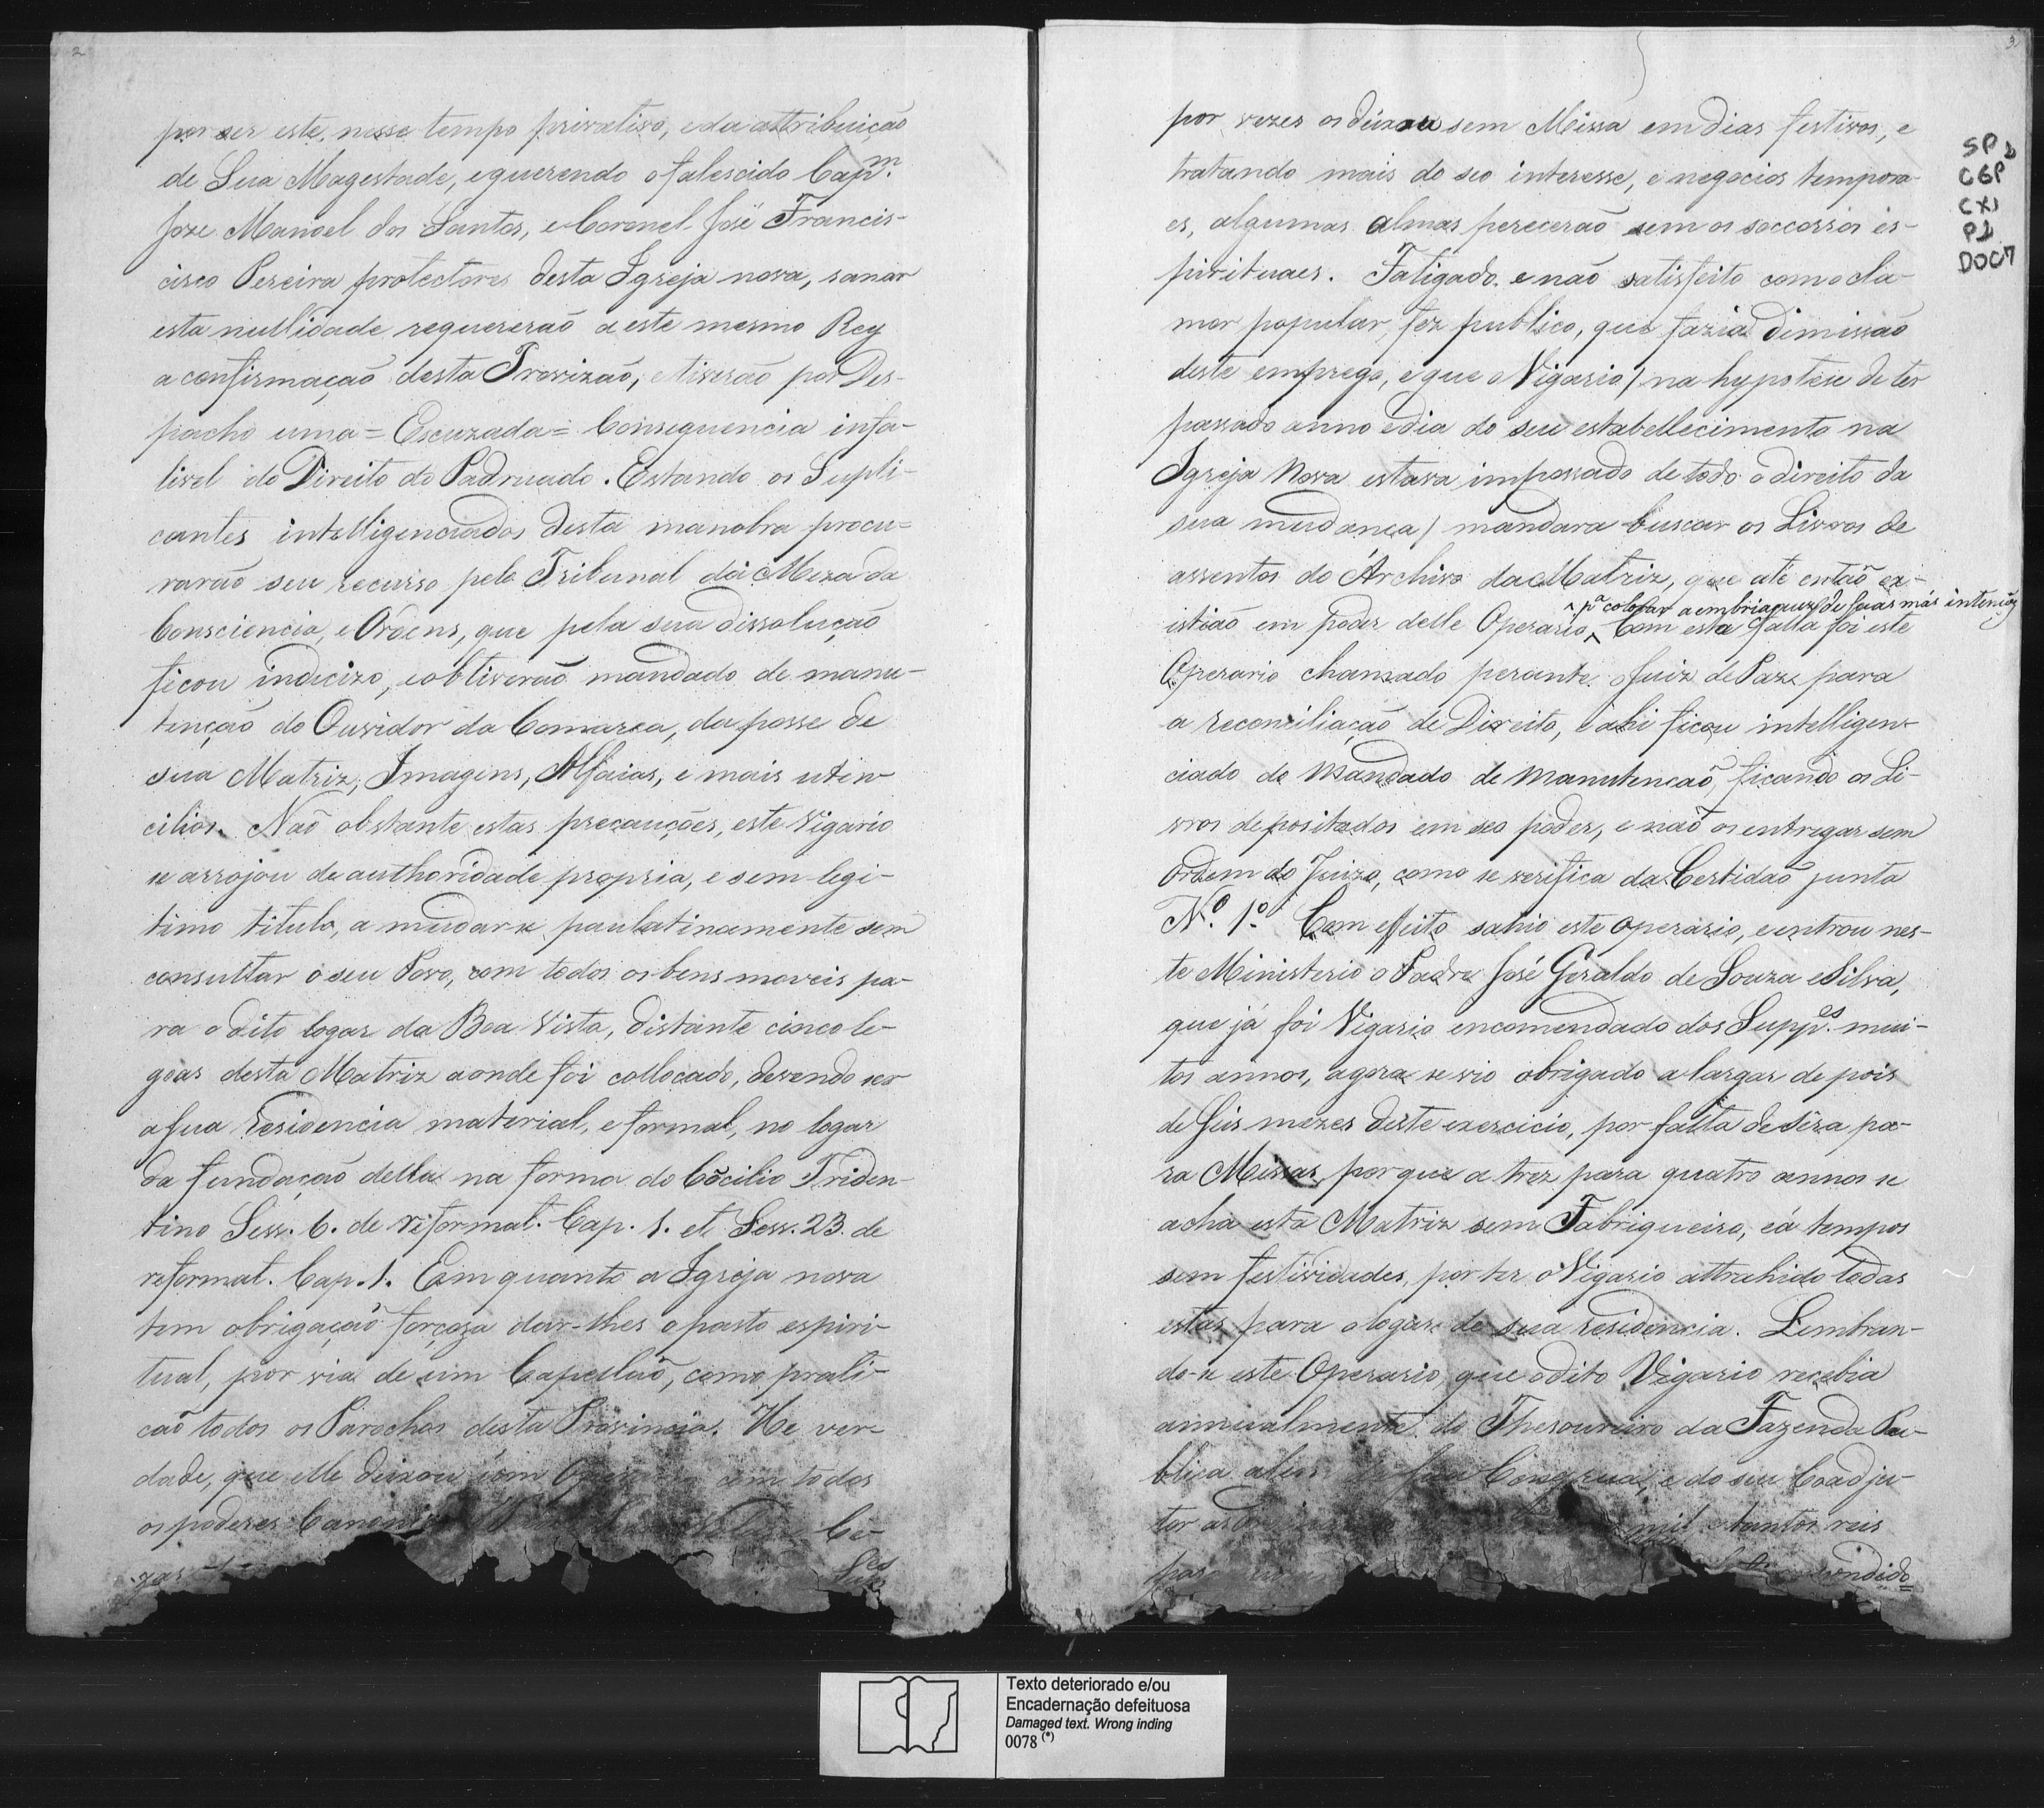 2
por ser este, nesse tempo privativo, e da attribuição
de Sua Magestade, e querendo o falescido Cap.m
Joze Manoel dos Santos, e Coronel José Francis-
cisco Pereira protectores desta Igreja nova, sanar
esta nullidade requererão a este mesmo Rey
a confirmação desta Provizão, e tiverão por Des-
pacho uma = Escuzada = Consequencia infa-
livel do Direito do Padruado. Estando os Supli-
cantes intelligenciados desta manobra procu-
rarão seu recurso pelo Tribunal da Meza da
Consciencia, e Ordens, que pela sua dissolução
ficou indecizo, e obtiverão mandado de manu-
tenção do Ouvidor da Comarca, da posse de
sua Matriz, Imagens, Alfaias, e mais uten-
cilios. Naõ obstante estas precauções, este Vigario
se arrojou de authoridade propria, e sem legi-
timo titulo, a mudar se paulatinamente sem
consultar o seu Povo, com todos os bens moveis pa-
ra o dito logar da Boa Vista, distante cinco le-
goas desta Matriz aonde foi collocado, devendo ser
a sua residencia material, e formal, no logar
da fundação della na forma do Cõcilio Triden-
tino Sess. 6. de reformat. Cap. 1. et Sess. 23. de
reformat. Cap. 1. Em quanto a Igreja nova
tem obrigação forçoza dar-lhes o pasto espiri-
tual, por via de um Capellaõ, como prati-
caõ todos os Parochos desta Provincia. He ver-
dade, que elle deixou um com todos
os poderes

3
SP1
CGP
CX1
P1
DOC7
por vezes os deixou sem Missa em dias festivos, e
tratando mais do seo interesse, e negocios tempora-
es, algumas almas perecerão sem os soccorros es-
pirituaes. Fatigado, e naõ satisfeito com o cla-
mor popular, fez publico, que fazia dimissaõ
deste emprego, e que o Vigario / na hypotese de ter
passado anno e dia do seu estabellecimento na
Igreja Nova estava impossado de todo o direito da
sua mudança / mandara buscar os Livros de
assentos do Archivo da Matriz, que até então ex-
pª colorar a embriaguez de suas más intençoẽs
istiaõ em poder delle Operario. Com esta falta foi este
Operario chamado perante o Juiz de Paz para
a reconciliação de Direito, e ahi ficou intelligen-
ciado do Mandado de Manutencaõ, ficando os Li-
vros depositados em seo poder, e naõ os entregar sem
Ordem do Juizo, como se verifica da Certidaõ junta
N.º 1.º Com effeito sahio este operario, e entrou nes-
te Ministerio o Padre José Geraldo de Souza e Silva,
que já foi Vigario encomendado dos Supp.es mui-
tos annos, agora se vio obrigado a largar de pois
de Seis mezes deste exercicio, por falta de sêra pa-
ra Missas, porque a trez para quatro annos se
acha esta Matriz sem Fabriqueiro, e á tempos
sem festividades, por ter o Vigario attrahido todas
estas para o logar de sua residencia. Lembran-
do-se este Operario, que o dito Vigario recebia
annualmente do Thesoureiro da Fazenda Pu-
blica alem da sua Congrua, e do seu Coadju-
tor as mil e tantos reis
para

Texto deteriorado e/ou
Encadernação defeituosa
Damaged text. Wrong inding
0078 (*)